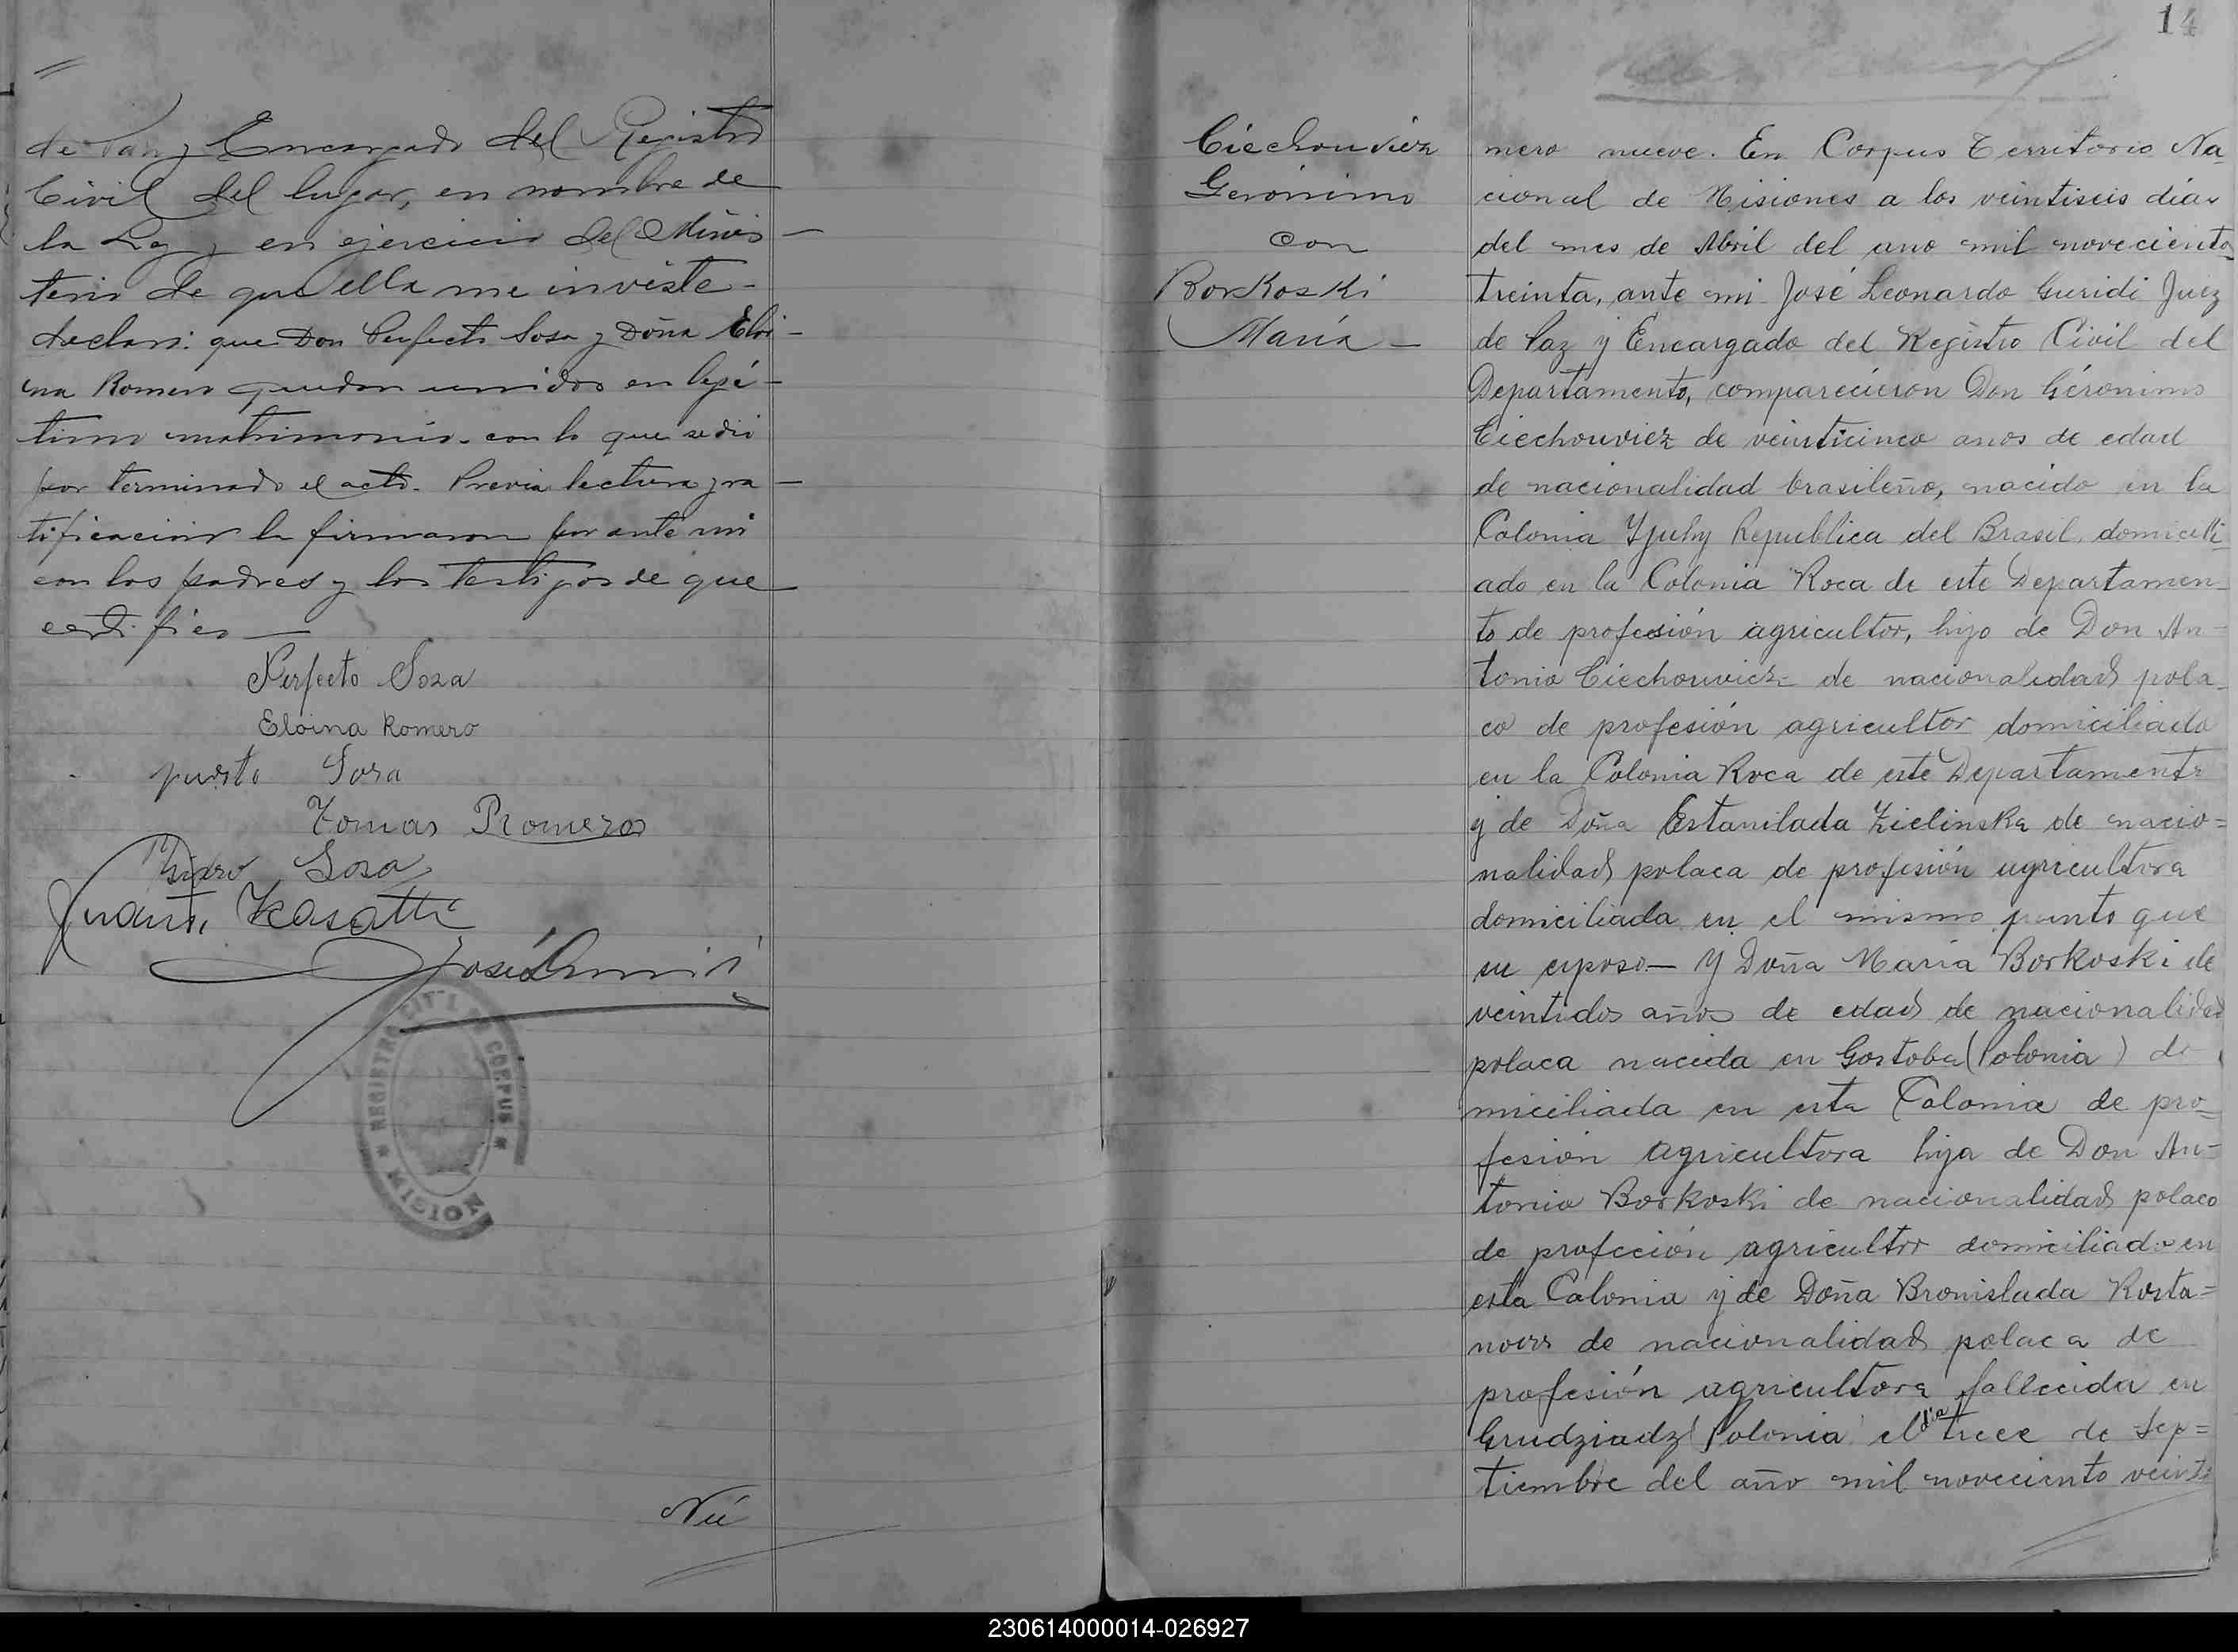 de Paz y Encargado del Registro
Civil del lugar, en nombre de
la Ley y en ejercicio del Minis-
terio de que ella me inviste-
declaro: que Don Perfecto Sosa y Doña Eloi-
na Romero quedan unidos en legí-
timo matrimonio. con lo que se dió
por terminado el acto. Previa lectura y ra-
tificacion la firmaron por ante mi
con los padres y los testigos de que
certifico—
Perfecto Soza
Eloina Romero
Sosa
Tomas Romero
Isidro Sosa
José
REGISTRO CIVIL CORPUS
MISION
Nú
14
Ciechouviez
Gerónimo
con
Borkoski
María—
mero nueve. En Corpus Territorio Na-
cional de Misiones a los veintiseis días
del mes de Abril del ano mil novecientos
treinta, ante mi José Leonardo Guridi Juez
de Paz y Encargado del Registro Civil del
Departamento, comparecieron Don Géronimo
Ciechouviez de veinticinco anos de edad
de nacionalidad brasileño, nacido en la
Colonia Yjuhy Republica del Brasil, domicili-
ado en la Colonia Roca de este Departamen-
to de profesión agricultor, hijo de Don An-
tonio Ciechouvicz de nacionalidad pola-
co de profesión agricultor domiciliado
en la Colonia Roca de este Departamento
y de Doña Estanilada Zielinska de nacio=
nalidad polaca de profesión agricultora
domiciliada en el mismo punto que
su esposo.— Y Doña María Borkoski de
veintidos años de edad de nacionalidad
polaca nacida en Gostoba (Polonia) do
miciliada en esta Colonia de pro=
fesión agricultora hija de Don An=
tonio Borkoski de nacionalidad polaco
de profección agricultor domiciliado en
esta Colonia y de Doña Bronislada Rosta=
de nacionalidad polaca de
profesión agricultora fallecida en
Grudziadz Polonia el día trece de Sep=
tiembre del año mil noveciento veinte
230614000014-026927